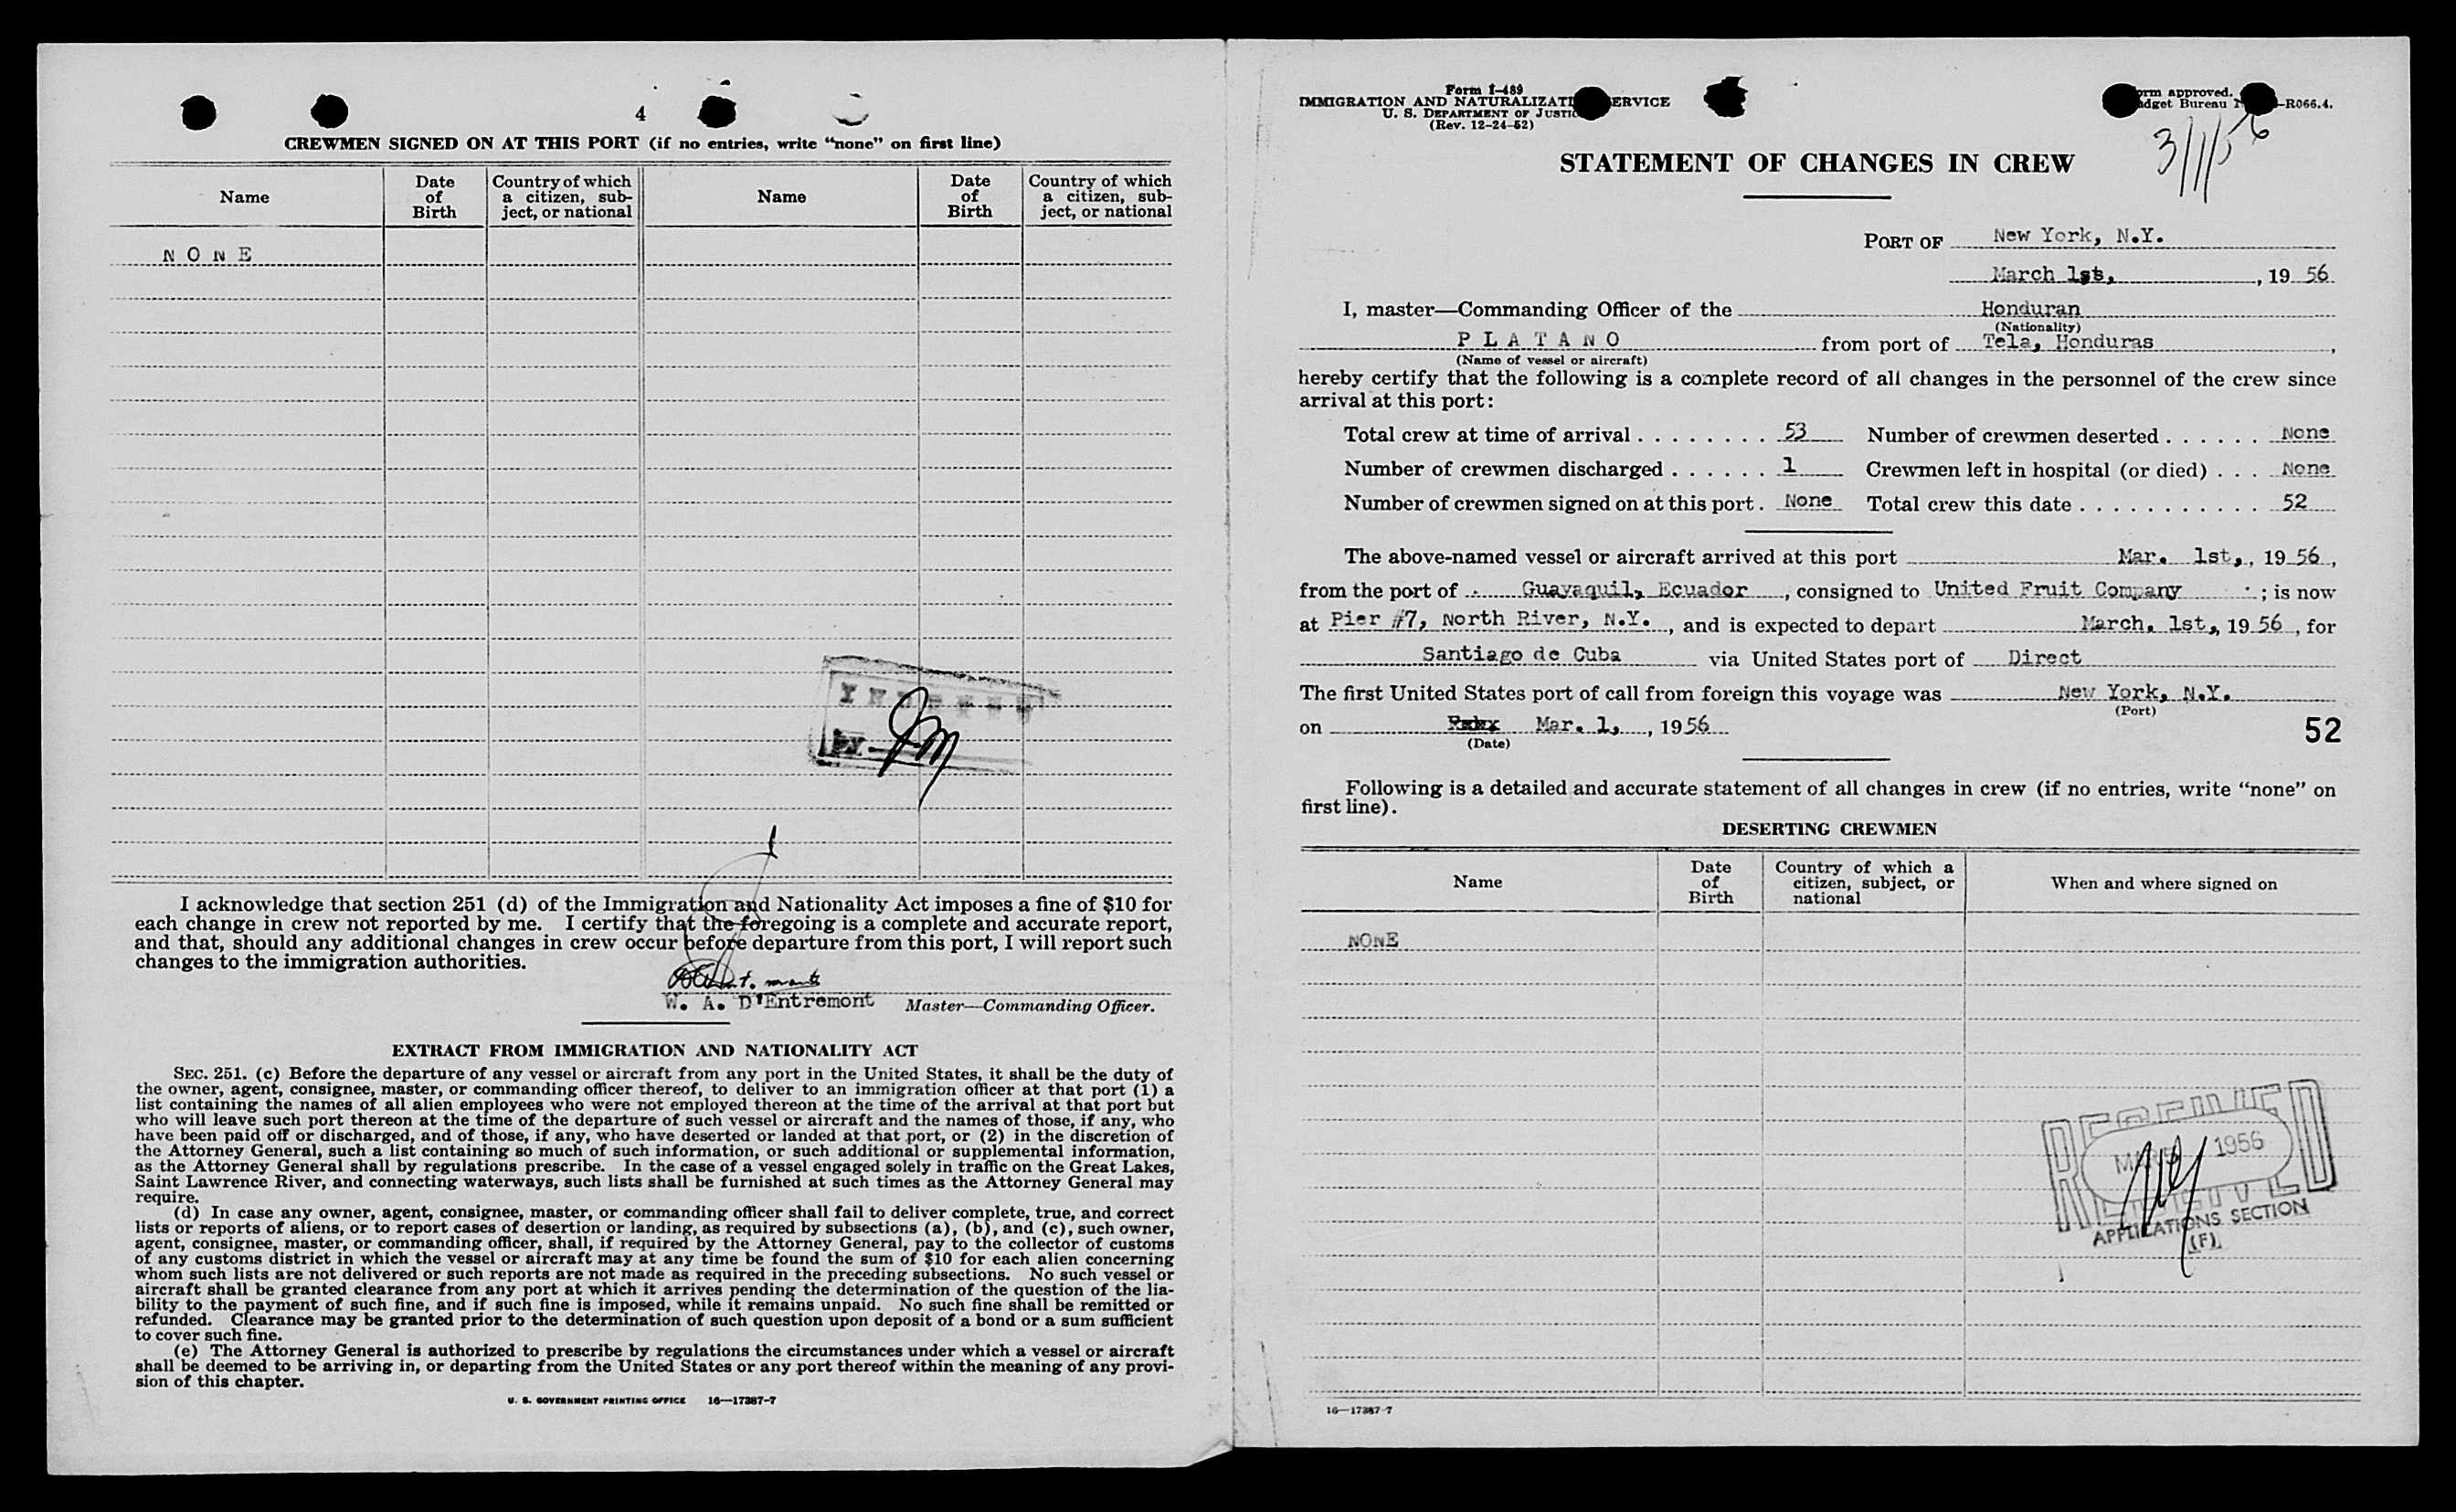 4
CREWMEN SIGNED ON AT THIS PORT (if no entries, write "none" on first line)
Name
Date of Birth
Country of which a citizen, subject, or national
Name
Date of Birth
Country of which a citizen, subject, or national
N O N E
BY
I acknowledge that section 251 (d) of the Immigration and Nationality Act imposes a fine of $10 for
each change in crew not reported by me. I certify that the foregoing is a complete and accurate report,
and that, should any additional changes in crew occur before departure from this port, I will report such
changes to the immigration authorities.
W. A. D'Entremont Master—Commanding Officer.
EXTRACT FROM IMMIGRATION AND NATIONALITY ACT
SEC. 251. (c) Before the departure of any vessel or aircraft from any port in the United States, it shall be the duty of
the owner, agent, consignee, master, or commanding officer thereof, to deliver to an immigration officer at that port (1) a
list containing the names of all alien employees who were not employed thereon at the time of the arrival at that port but
who will leave such port thereon at the time of the departure of such vessel or aircraft and the names of those, if any, who
have been paid off or discharged, and of those, if any, who have deserted or landed at that port, or (2) in the discretion of
the Attorney General, such a list containing so much of such information, or such additional or supplemental information,
as the Attorney General shall by regulations prescribe. In the case of a vessel engaged solely in traffic on the Great Lakes,
Saint Lawrence River, and connecting waterways, such lists shall be furnished at such times as the Attorney General may
require.
(d) In case any owner, agent, consignee, master, or commanding officer shall fail to deliver complete, true, and correct
lists or reports of aliens, or to report cases of desertion or landing, as required by subsections (a), (b), and (c), such owner,
agent, consignee, master, or commanding officer, shall, if required by the Attorney General, pay to the collector of customs
of any customs district in which the vessel or aircraft may at any time be found the sum of $10 for each alien concerning
whom such lists are not delivered or such reports are not made as required in the preceding subsections. No such vessel or
aircraft shall be granted clearance from any port at which it arrives pending the determination of the question of the lia-
bility to the payment of such fine, and if such fine is imposed, while it remains unpaid. No such fine shall be remitted or
refunded. Clearance may be granted prior to the determination of such question upon deposit of a bond or a sum sufficient
to cover such fine.
(e) The Attorney General is authorized to prescribe by regulations the circumstances under which a vessel or aircraft
shall be deemed to be arriving in, or departing from the United States or any port thereof within the meaning of any provi-
sion of this chapter.
U. S. GOVERNMENT PRINTING OFFICE 16—17387-7
Form I-489
IMMIGRATION AND NATURALIZATI ERVICE
U. S. DEPARTMENT OF JUSTIC
(Rev. 12-24-52)
orm approved.
dget Bureau N –R066.4.
3/1/56
STATEMENT OF CHANGES IN CREW
PORT OF New York, N.Y.
March 1st, , 19 56
I, master—Commanding Officer of the Honduran
(Nationality)
P L A T A N O from port of Tela, Honduras ,
(Name of vessel or aircraft)
hereby certify that the following is a complete record of all changes in the personnel of the crew since
arrival at this port:
Total crew at time of arrival . . . . . . . . 53 Number of crewmen deserted . . . . . . None
Number of crewmen discharged . . . . . . 1 Crewmen left in hospital (or died) . . . None
Number of crewmen signed on at this port . None Total crew this date . . . . . . . . . . . 52
The above-named vessel or aircraft arrived at this port Mar. 1st, , 19 56 ,
from the port of Guayaquil, Ecuador , consigned to United Fruit Company ; is now
at Pier #7, North River, N.Y. , and is expected to depart March, 1st, 19 56 , for
Santiago de Cuba via United States port of Direct
The first United States port of call from foreign this voyage was New York, N.Y.
(Port)
on Mar. 1, , 19 56
(Date)
52
Following is a detailed and accurate statement of all changes in crew (if no entries, write "none" on
first line).
DESERTING CREWMEN
Name
Date of Birth
Country of which a citizen, subject, or national
When and where signed on
NONE
RECEIVED
MAR 1956
RECEIVED
APPLICATIONS SECTION
(F)
16—17387-7